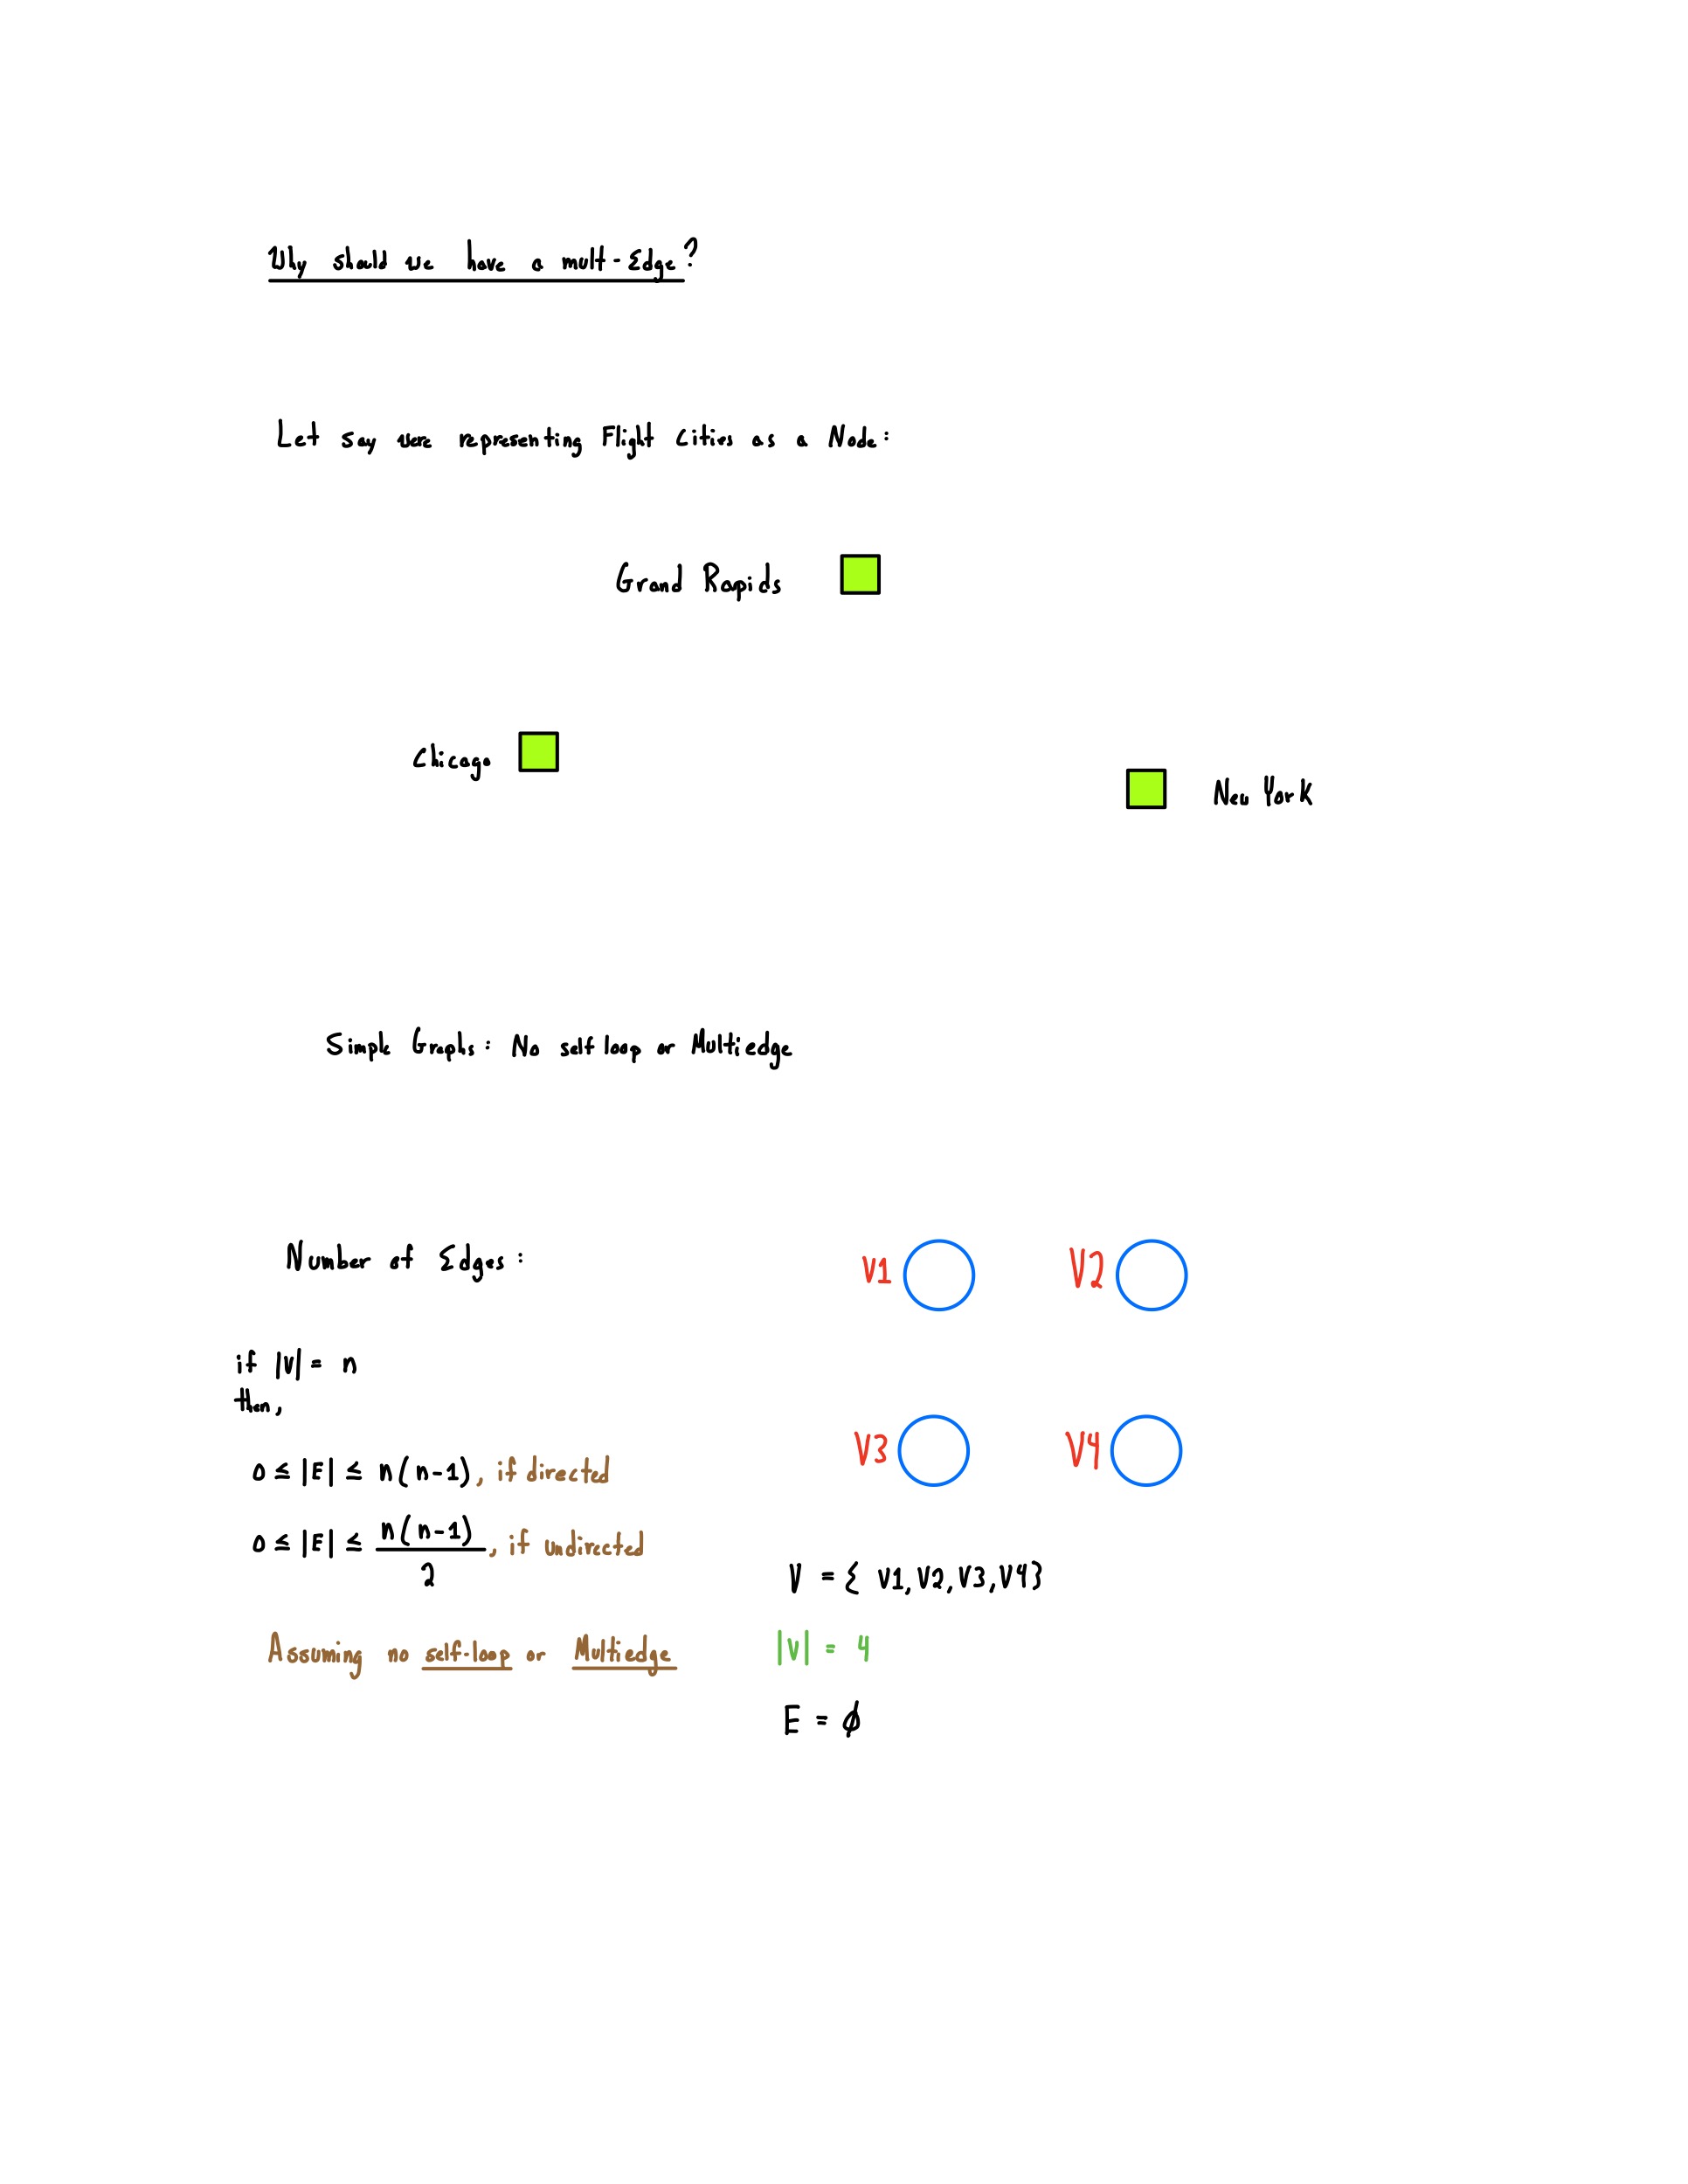 Why should we have a mult-Edge?
Let say were representing Flight Cities as a Node:
Grand Rapids
Chicago
New York
Simple Graphs: No self loop or Multiedge
Number of Edges:
if |V| = n
then,
0 ≤ |E| ≤ n(n-1), if directed
0 ≤ |E| ≤ n(n-1)/2, if undirected
Assuming no self-loop or Multiedge
V1
V2
V3
V4
V = { V1, V2, V3, V4}
|V| = 4
E = ϕ